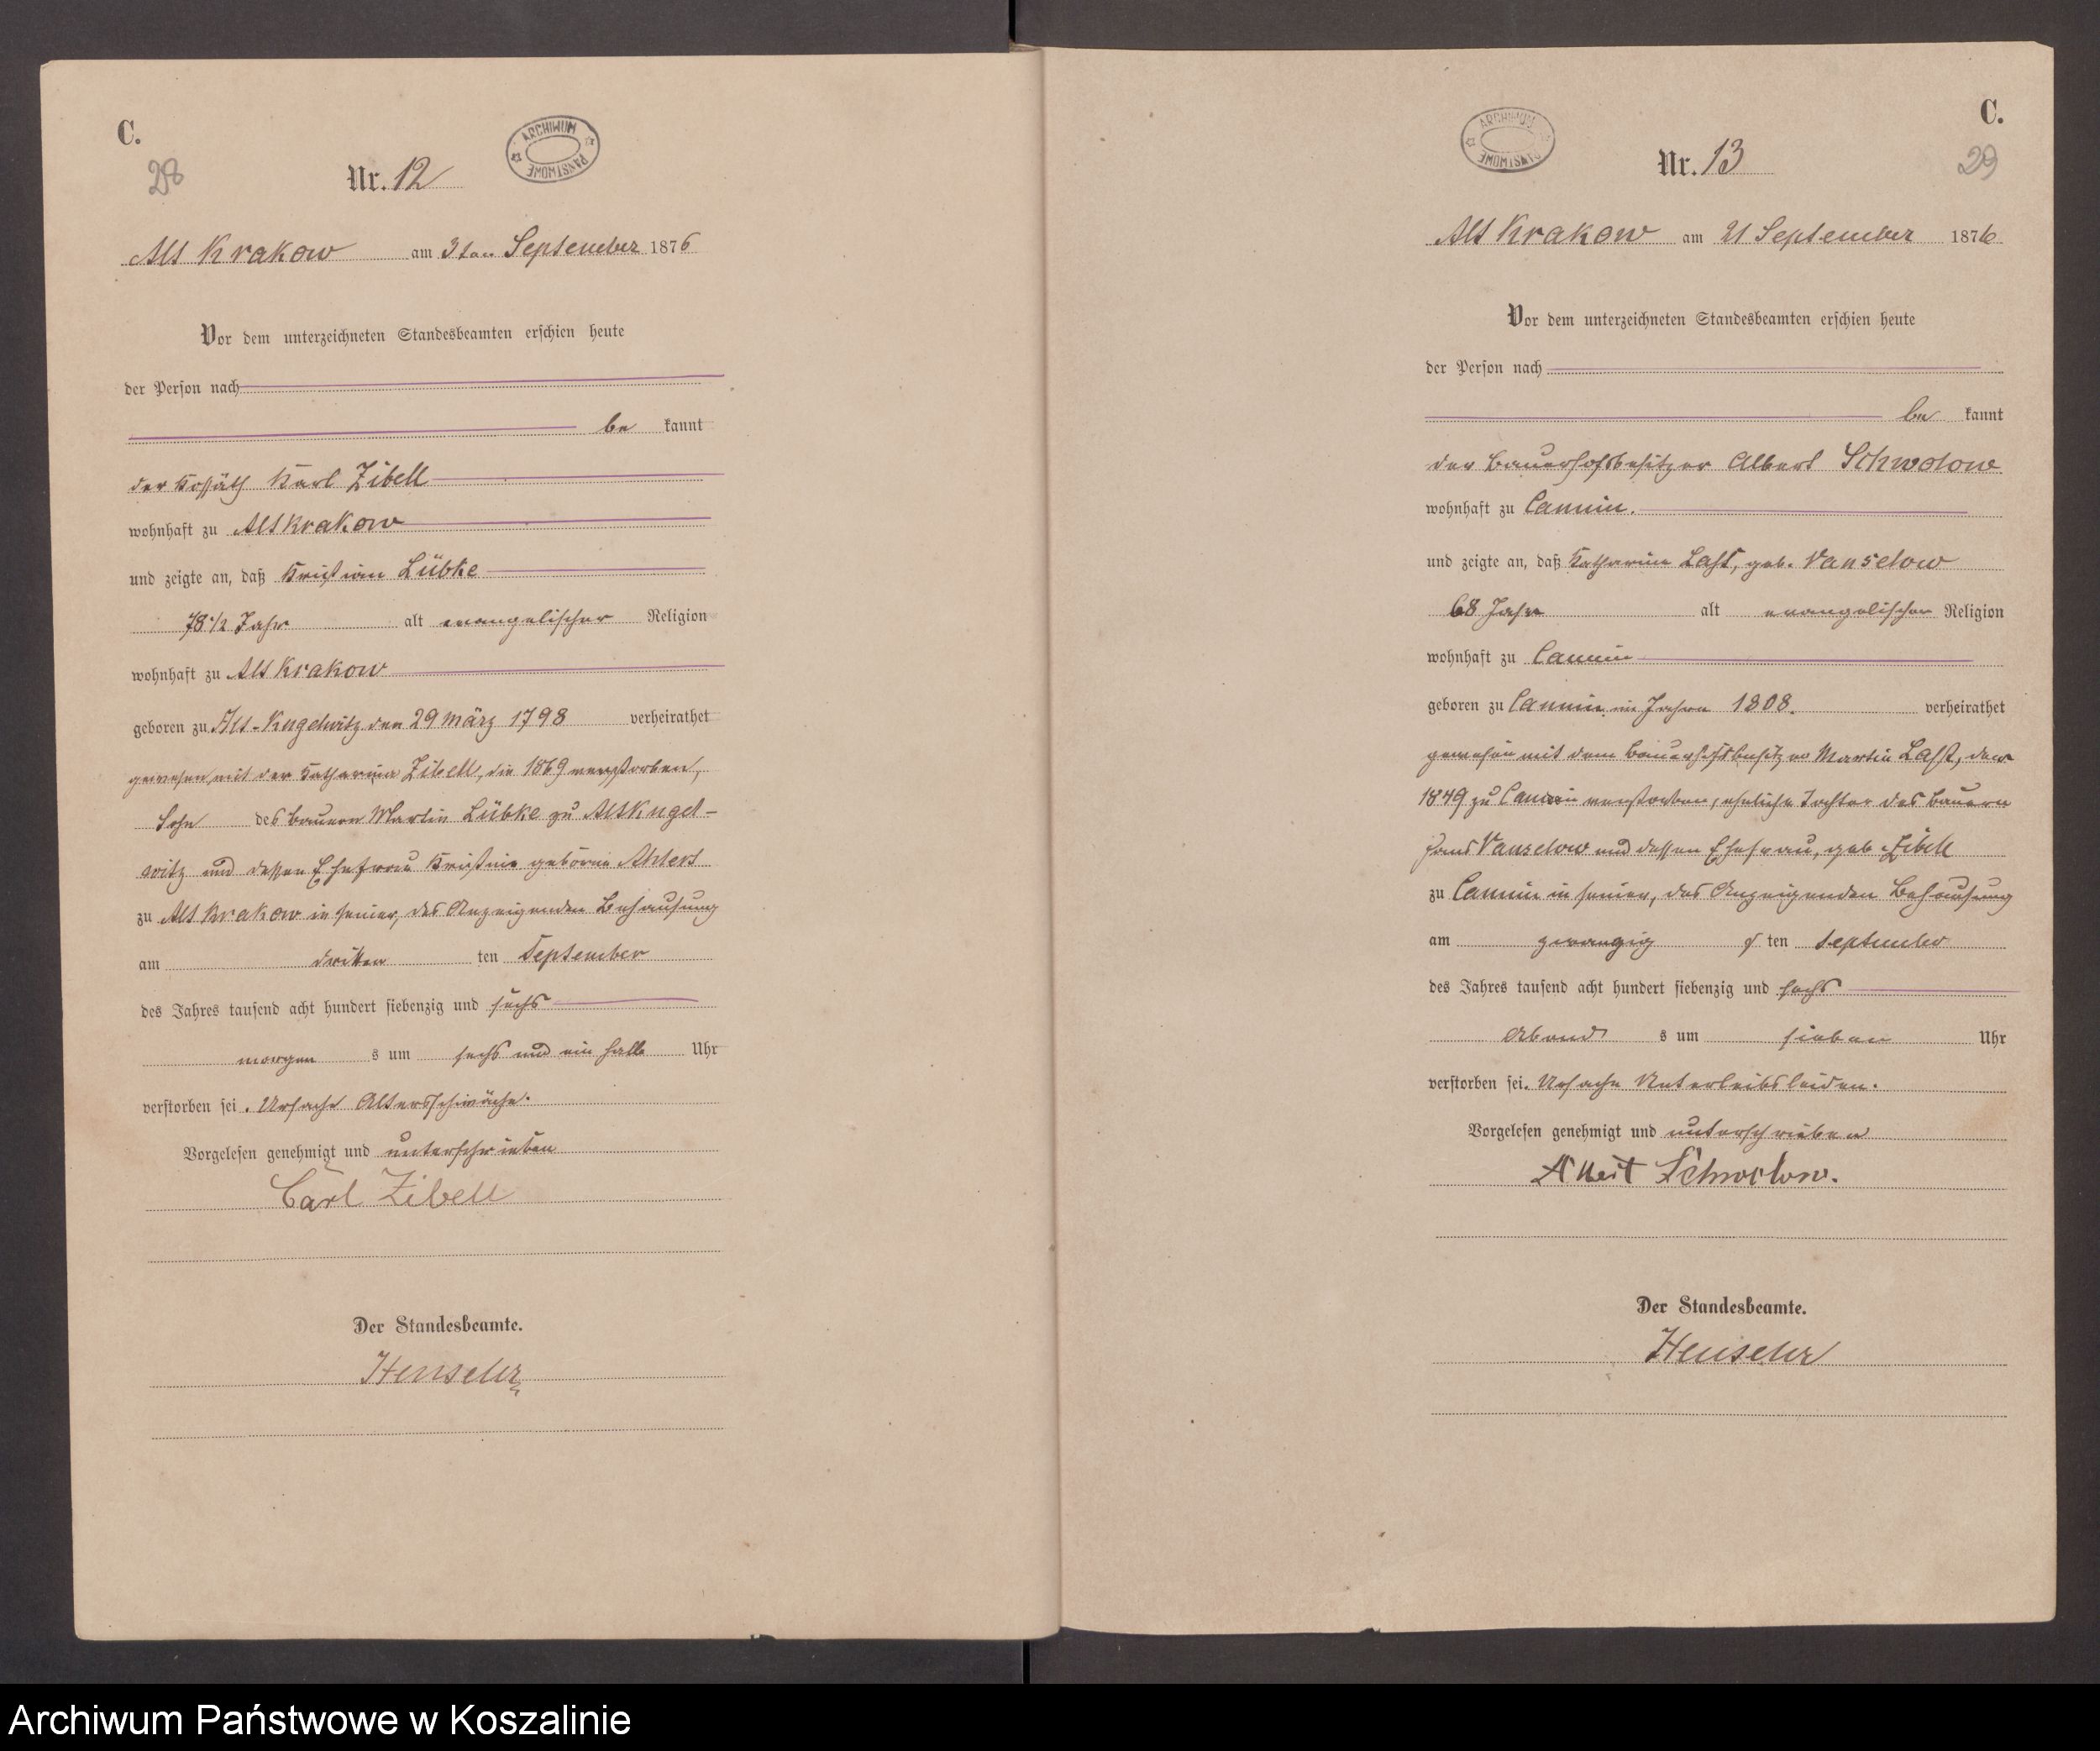 C.
ARCHIWUM PAŃSTWOWE
28
Nr. 12
Alt Krakow am 3ten September 1876
Vor dem unterzeichneten Standesbeamten erschien heute
der Person nach
be kannt
der Kossäth Karl Zibell
wohnhaft zu Alt Krakow
und zeigte an, daß Kristian Lübke
78 1/2 Jahr alt evangelischer Religion
wohnhaft zu Alt Krakow
geboren zu Alt-Kugelwitz den 29 März 1798 verheirathet
gewesen mit der Katharina Zibell, die 1869 verstorben,
Sohn des Bauern Martin Lübke zu Alt Kugel-
witz und dessen Ehefrau Kristine geborne Ahlert
zu Alt Krakow in seiner, des Anzeigenden Behausung
am dritten ten September
des Jahres tausend acht hundert siebenzig und sechs
morgen s um sechs und ein halb Uhr
verstorben sei. Ursache Altersschwäche.
Vorgelesen genehmigt und unterschrieben
Carl Zibell
Der Standesbeamte.
C.
ARCHIWUM PAŃSTWOWE
29
Nr. 13
Alt Krakow am 21 September 1876
Vor dem unterzeichneten Standesbeamten erschien heute
der Person nach
be kannt
der Bauerhofsbesitzer Albert Schwolow
wohnhaft zu Cannin.
und zeigte an, daß Katharine Last, geb. Vanselow
68 Jahre alt evangelischen Religion
wohnhaft zu Cannin
geboren zu Cannin im Jahre 1808. verheirathet
gewesen mit dem Bauerhofsbesitzer Martin Last, der
1849 zu Cannin verstorben, eheliche Tochter des Bauern
Hans Vanselow und dessen Ehefrau, geb. Zibell
zu Cannin in seiner, des Anzeigenden Behausung
am zwanzig s ten September
des Jahres tausend acht hundert siebenzig und sechs
Abend s um sieben Uhr
verstorben sei. Ursache Unterleibsleiden.
Vorgelesen genehmigt und unterschrieben
Albert Schwolow.
Der Standesbeamte.
Archiwum Państwowe w Koszalinie